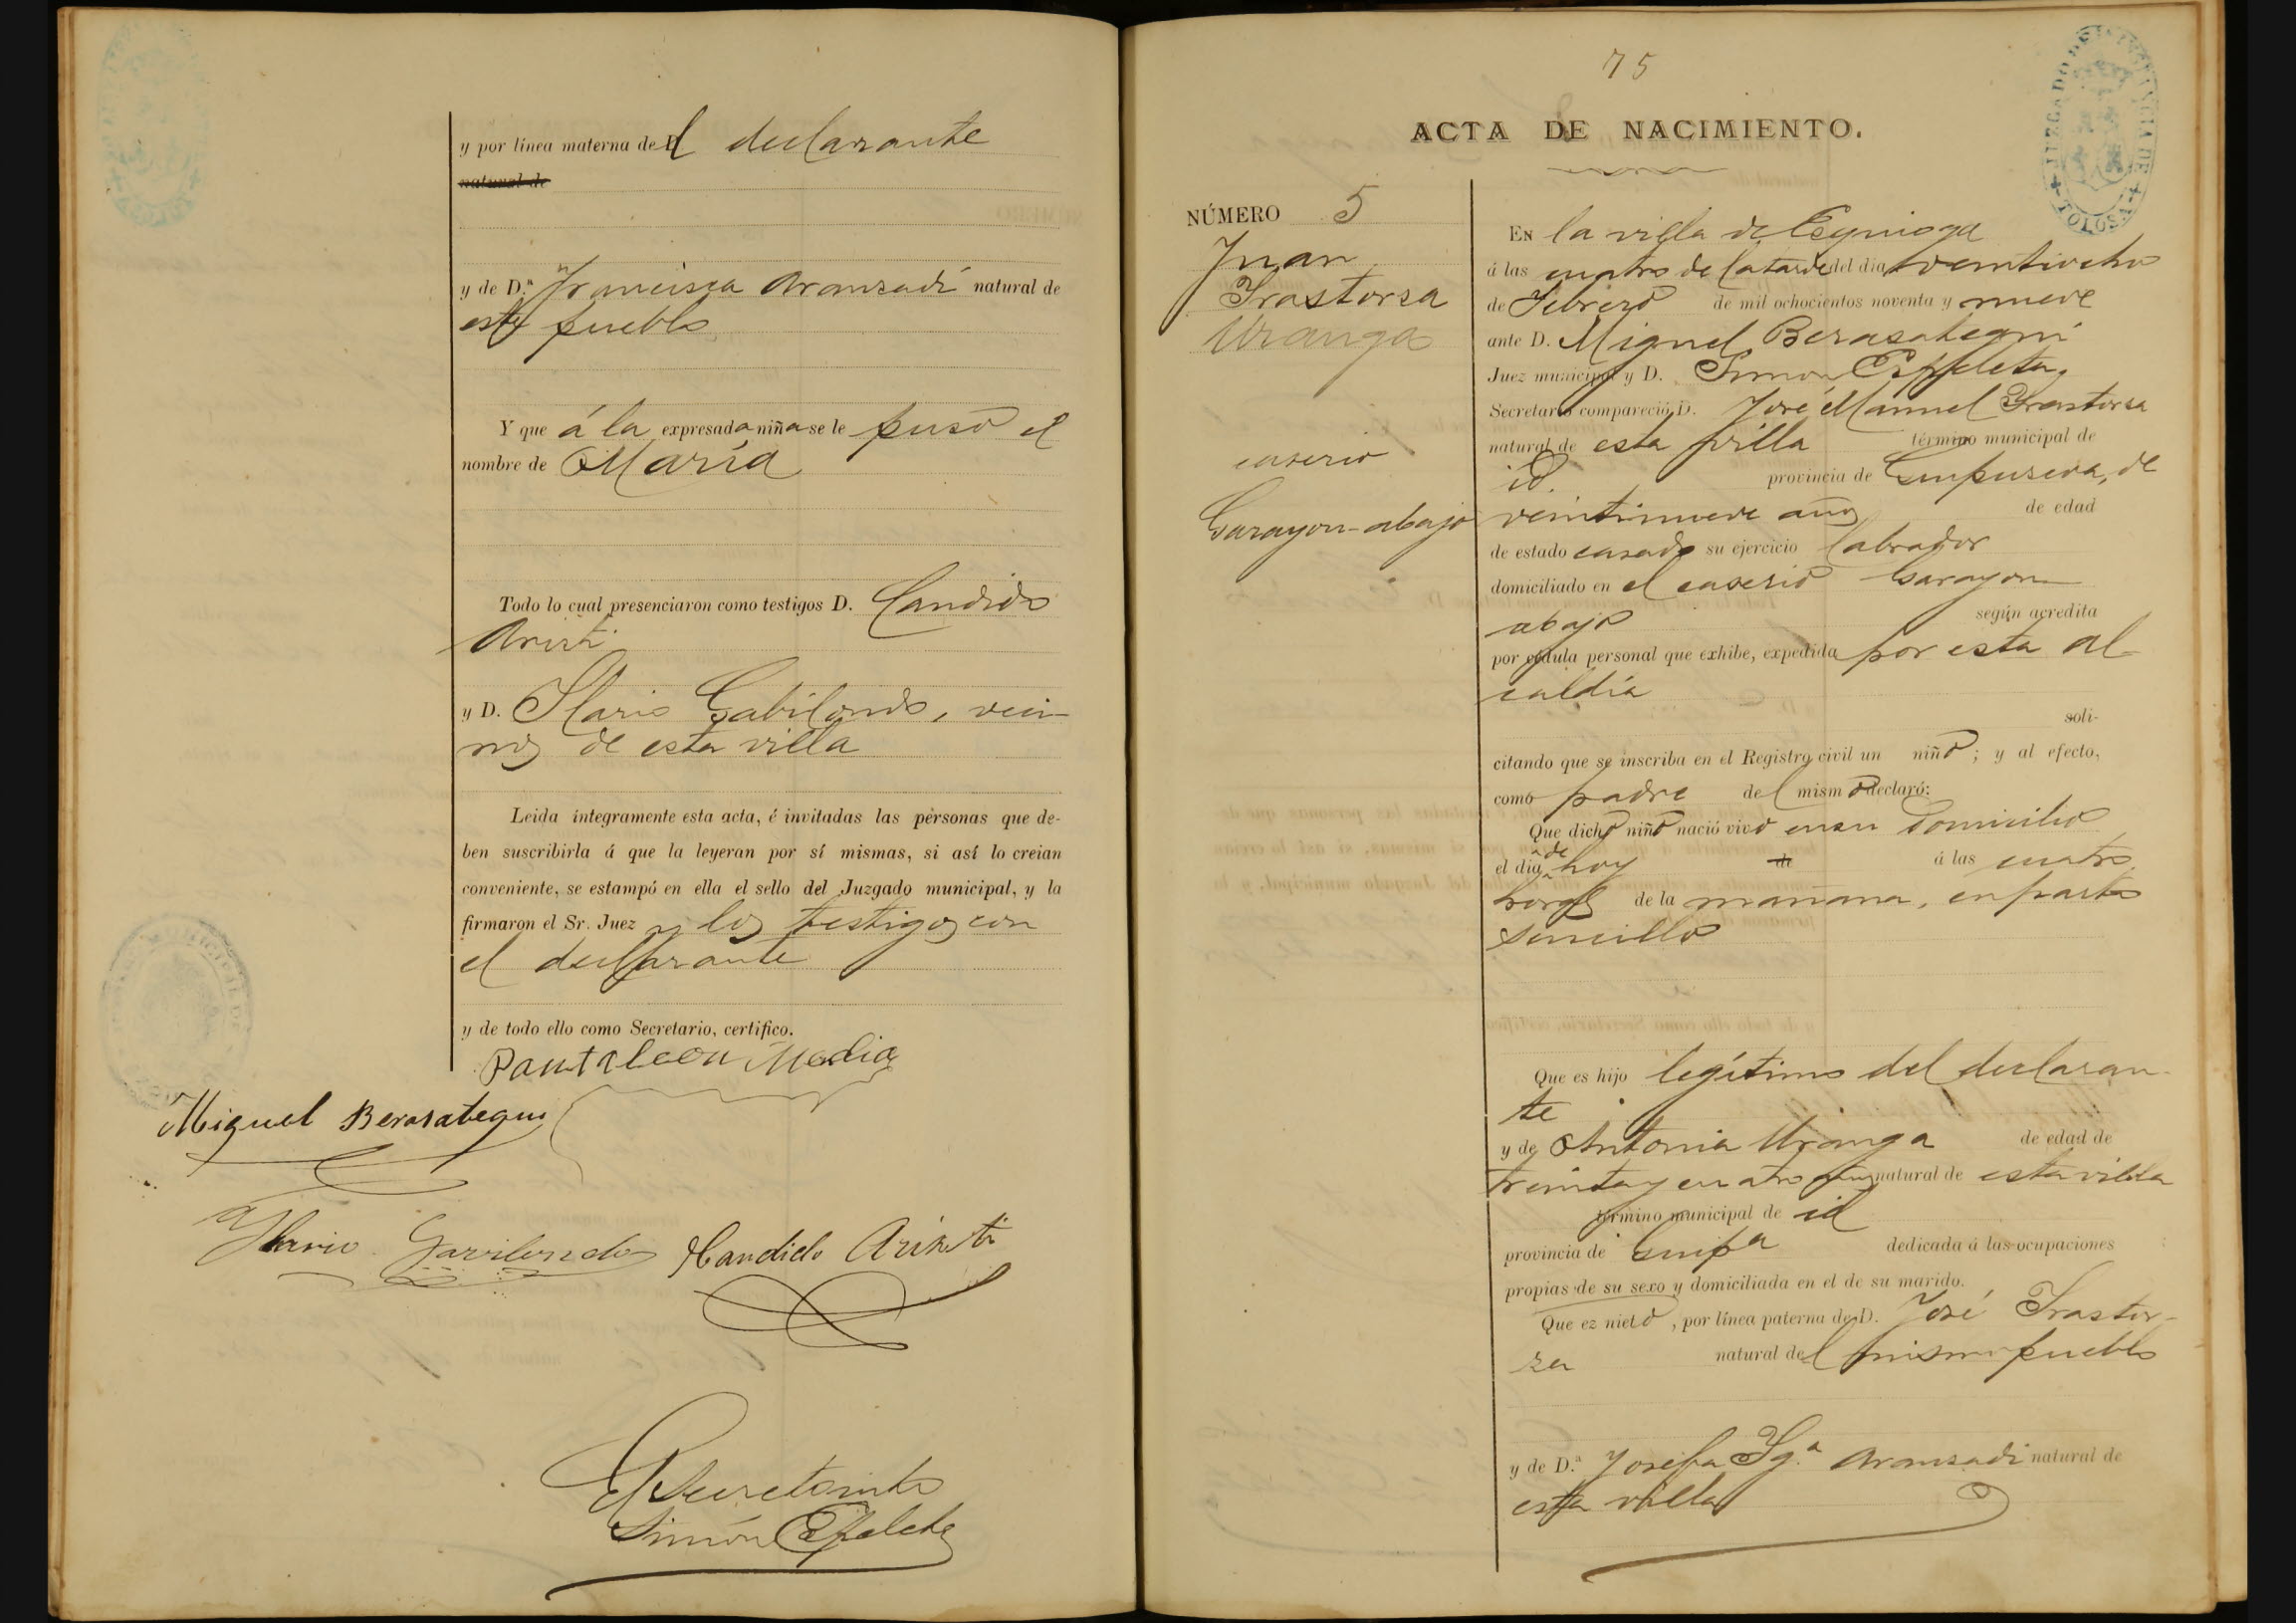 y por línea materna del declarante
natural de
y de D.ª Francisca Aranzadi natural de
este pueblo
Y que á la expresada niña se le puso el
nombre de María
Todo lo cual presenciaron como testigos D. Candido
Aristi
y D. Ilario Gabilondo, veci-
nos de esta villa
Leida íntegramente esta acta, é invitadas las personas que de-
ben suscribirla á que la leyeran por sí mismas, si así lo creian
conveniente, se estampó en ella el sello del Juzgado municipal, y la
firmaron el Sr. Juez y los testigos con
el declarante
y de todo ello como Secretario, certifico.
Pantaleon Media
Miguel Berasategui
Ilario Gavilondo Candido Aristi
El Secretario
Simón Ezpeleta
75
ACTA DE NACIMIENTO.
JUZGADO DE INSTANCIA DE TOLOSA
NÚMERO 5
Juan
Irastorza
Uranga
caserio
Garayon-abajo
En la villa de Ezquioga
á las cuatro de la tarde del dia veintiocho
de Febrero de mil ochocientos noventa y nueve
ante D. Miguel Berasategui
Juez municipal y D. Simon Ezpeleta,
Secretario compareció D. José Manuel Irastorza
natural de esta villa término municipal de
id. provincia de Guipuzcoa, de
veintinueve años de edad
de estado casado su ejercicio labrador
domiciliado en el caserio Garayon
abajo según acredita
por cédula personal que exhibe, expedida por esta al-
caldía
soli-
citando que se inscriba en el Registro civil un niño; y al efecto,
como padre del mismo declaró:
Que dicho niño nació vivo en su domicilio
el dia de hoy de á las cuatro
horas de la mañana, en parto
sencillo
Que es hijo legítimo del declaran-
te
y de Antonia Uranga de edad de
treinta y cuatro años natural de esta villa
término municipal de id
provincia de Guipa dedicada á las ocupaciones
propias de su sexo y domiciliada en el de su marido.
Que ez nieto, por línea paterna de D. José Irastor-
za natural del mismo pueblo
y de D.ª Josefa Ig.ª Aranzadi natural de
esta villa